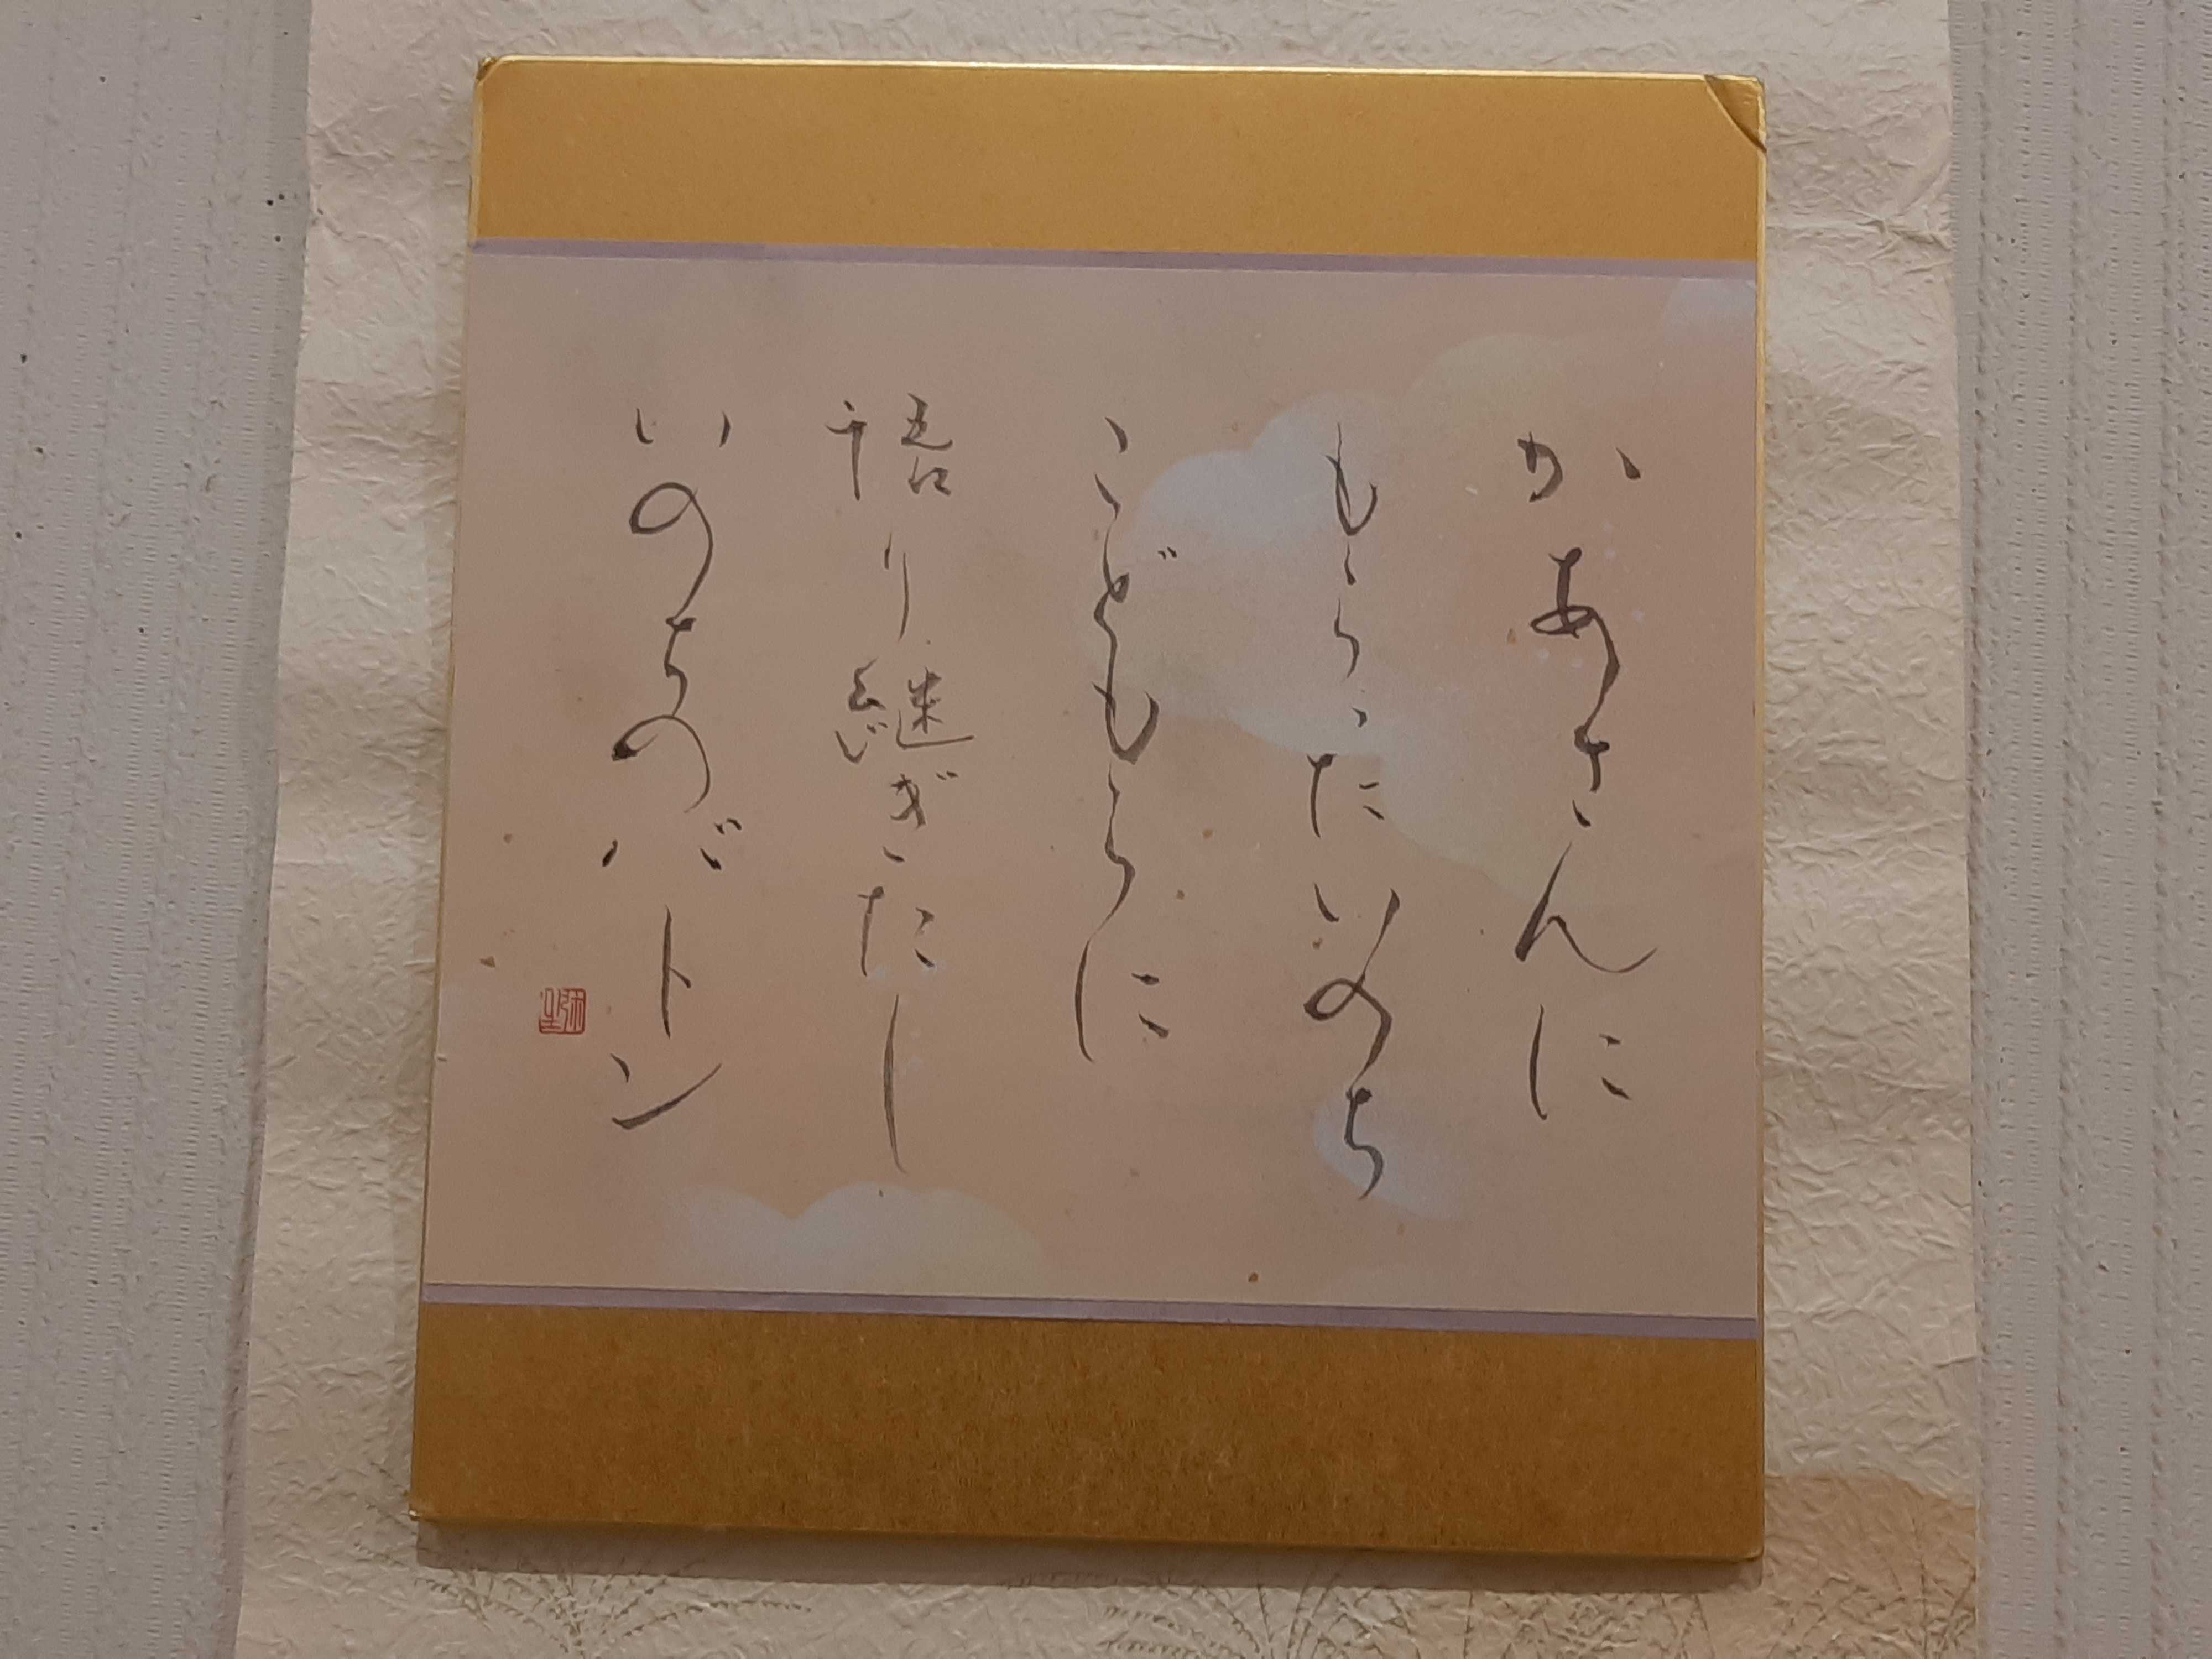 かあさんに
もらったいのち
こどもらに
語り継ぎたし
いのちのバトン